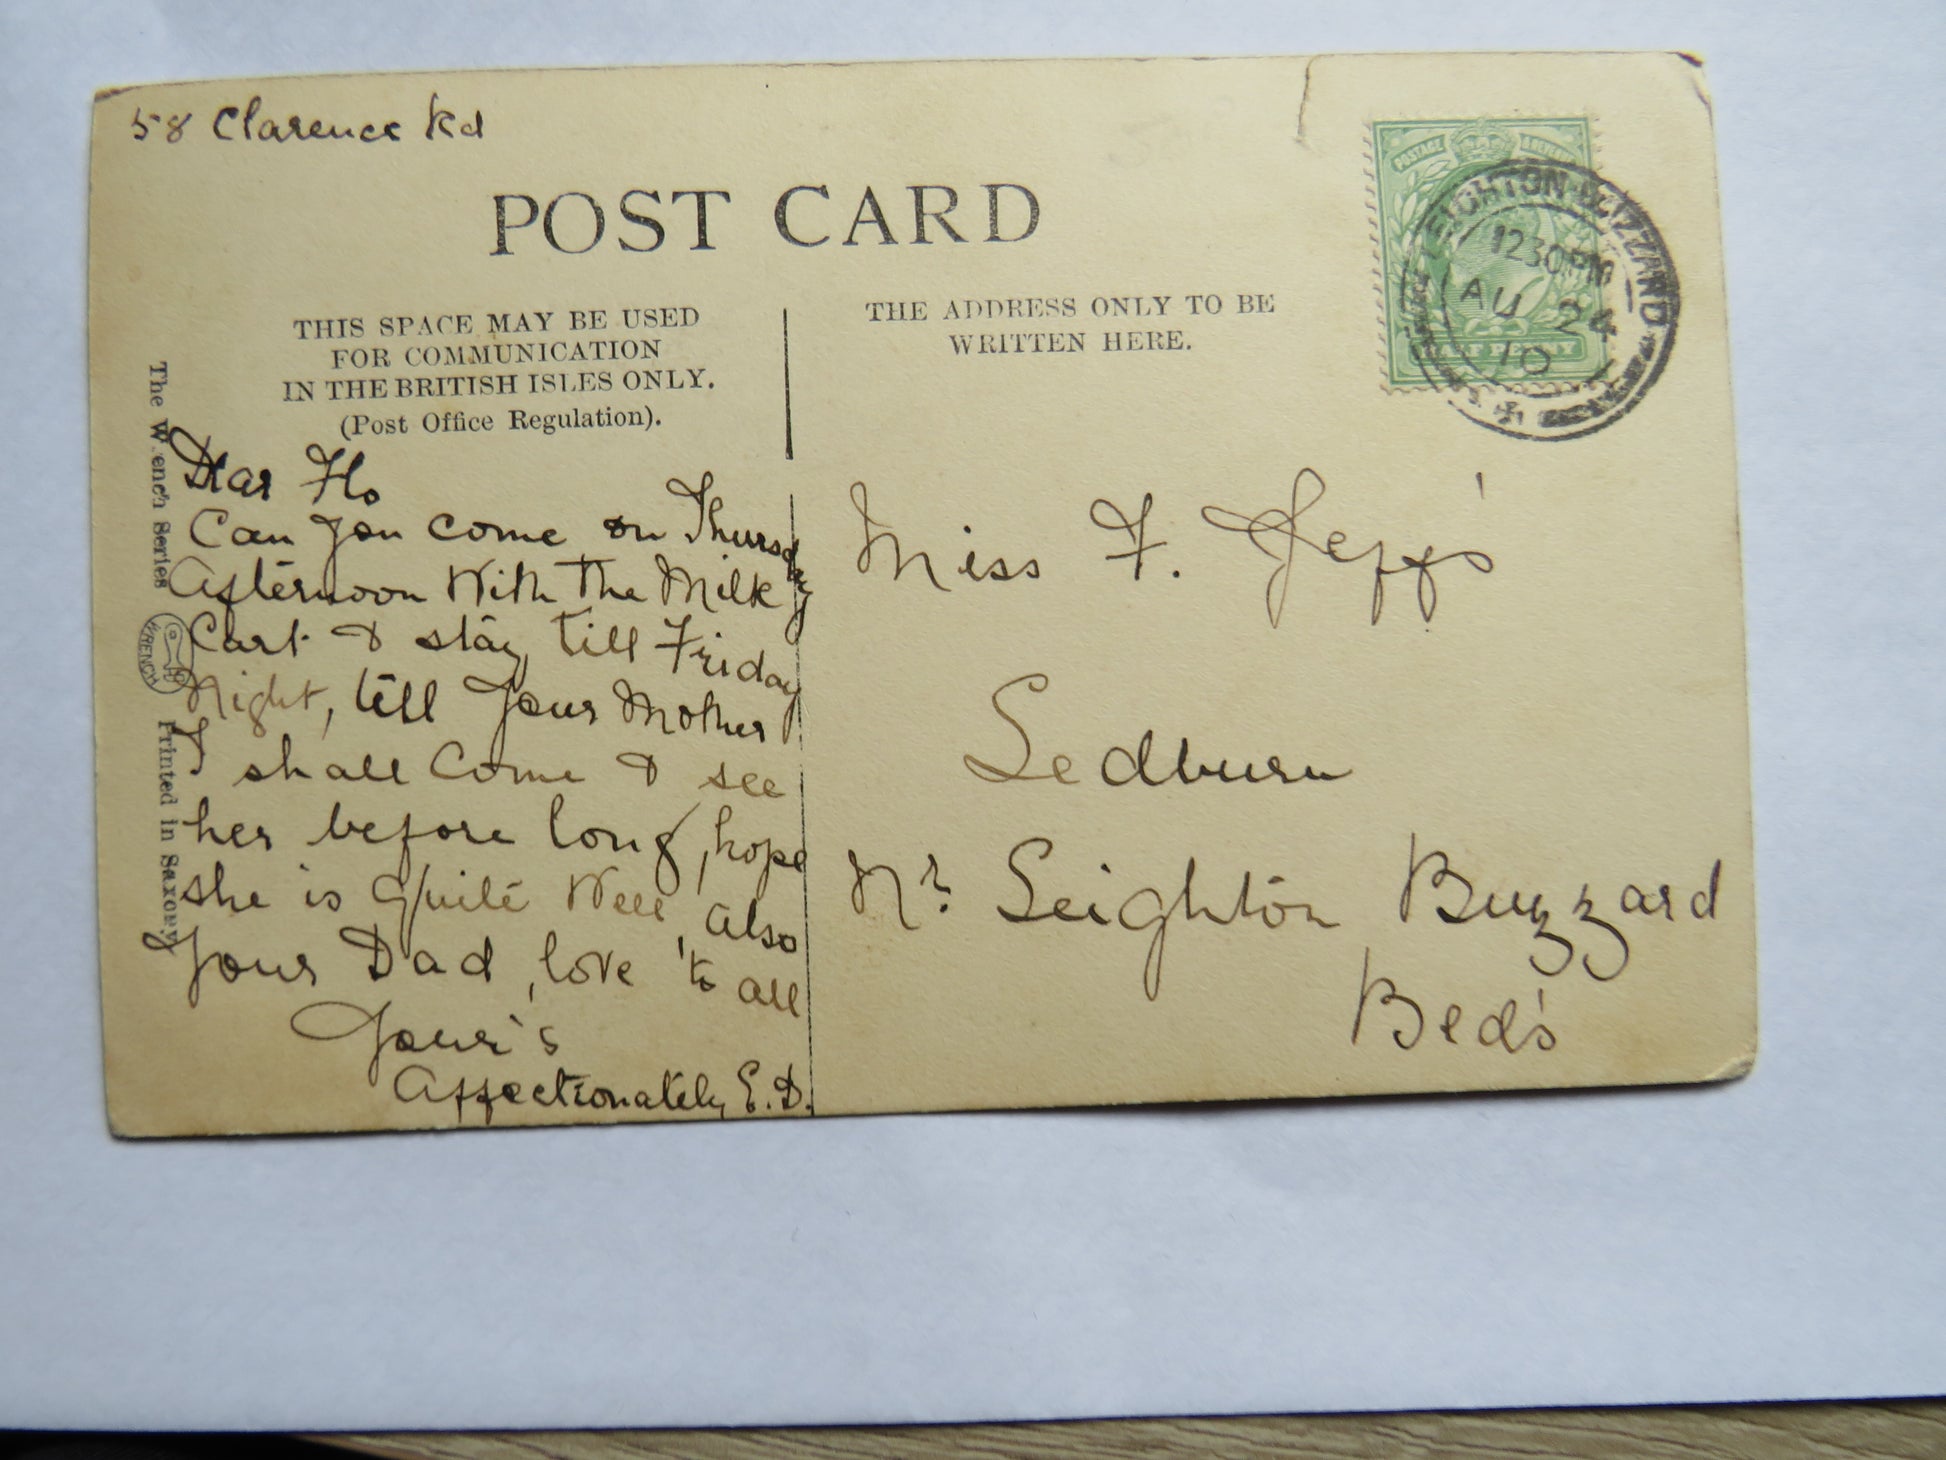 58 Clarence Rd
POST CARD
THIS SPACE MAY BE USED
FOR COMMUNICATION
IN THE BRITISH ISLES ONLY.
(Post Office Regulation).
Dear Flo
Can you come on Thursday
Afternoon With The Milk
Cart & stay till Friday
Night, till your Mother
I shall Come & see
her before long, hope
she is Quite Well, also
your Dad, love to all
Your's
Affectionately E.D.
The Wrench Series
WRENCH
Printed in Saxony
THE ADDRESS ONLY TO BE
WRITTEN HERE.
POSTAGE & REVENUE
HALF PENNY
LEIGHTON-BUZZARD
1230PM
AU 24
10
Miss F. Jeffs'
Ledburn
Nr. Leighton Buzzard
Bed's